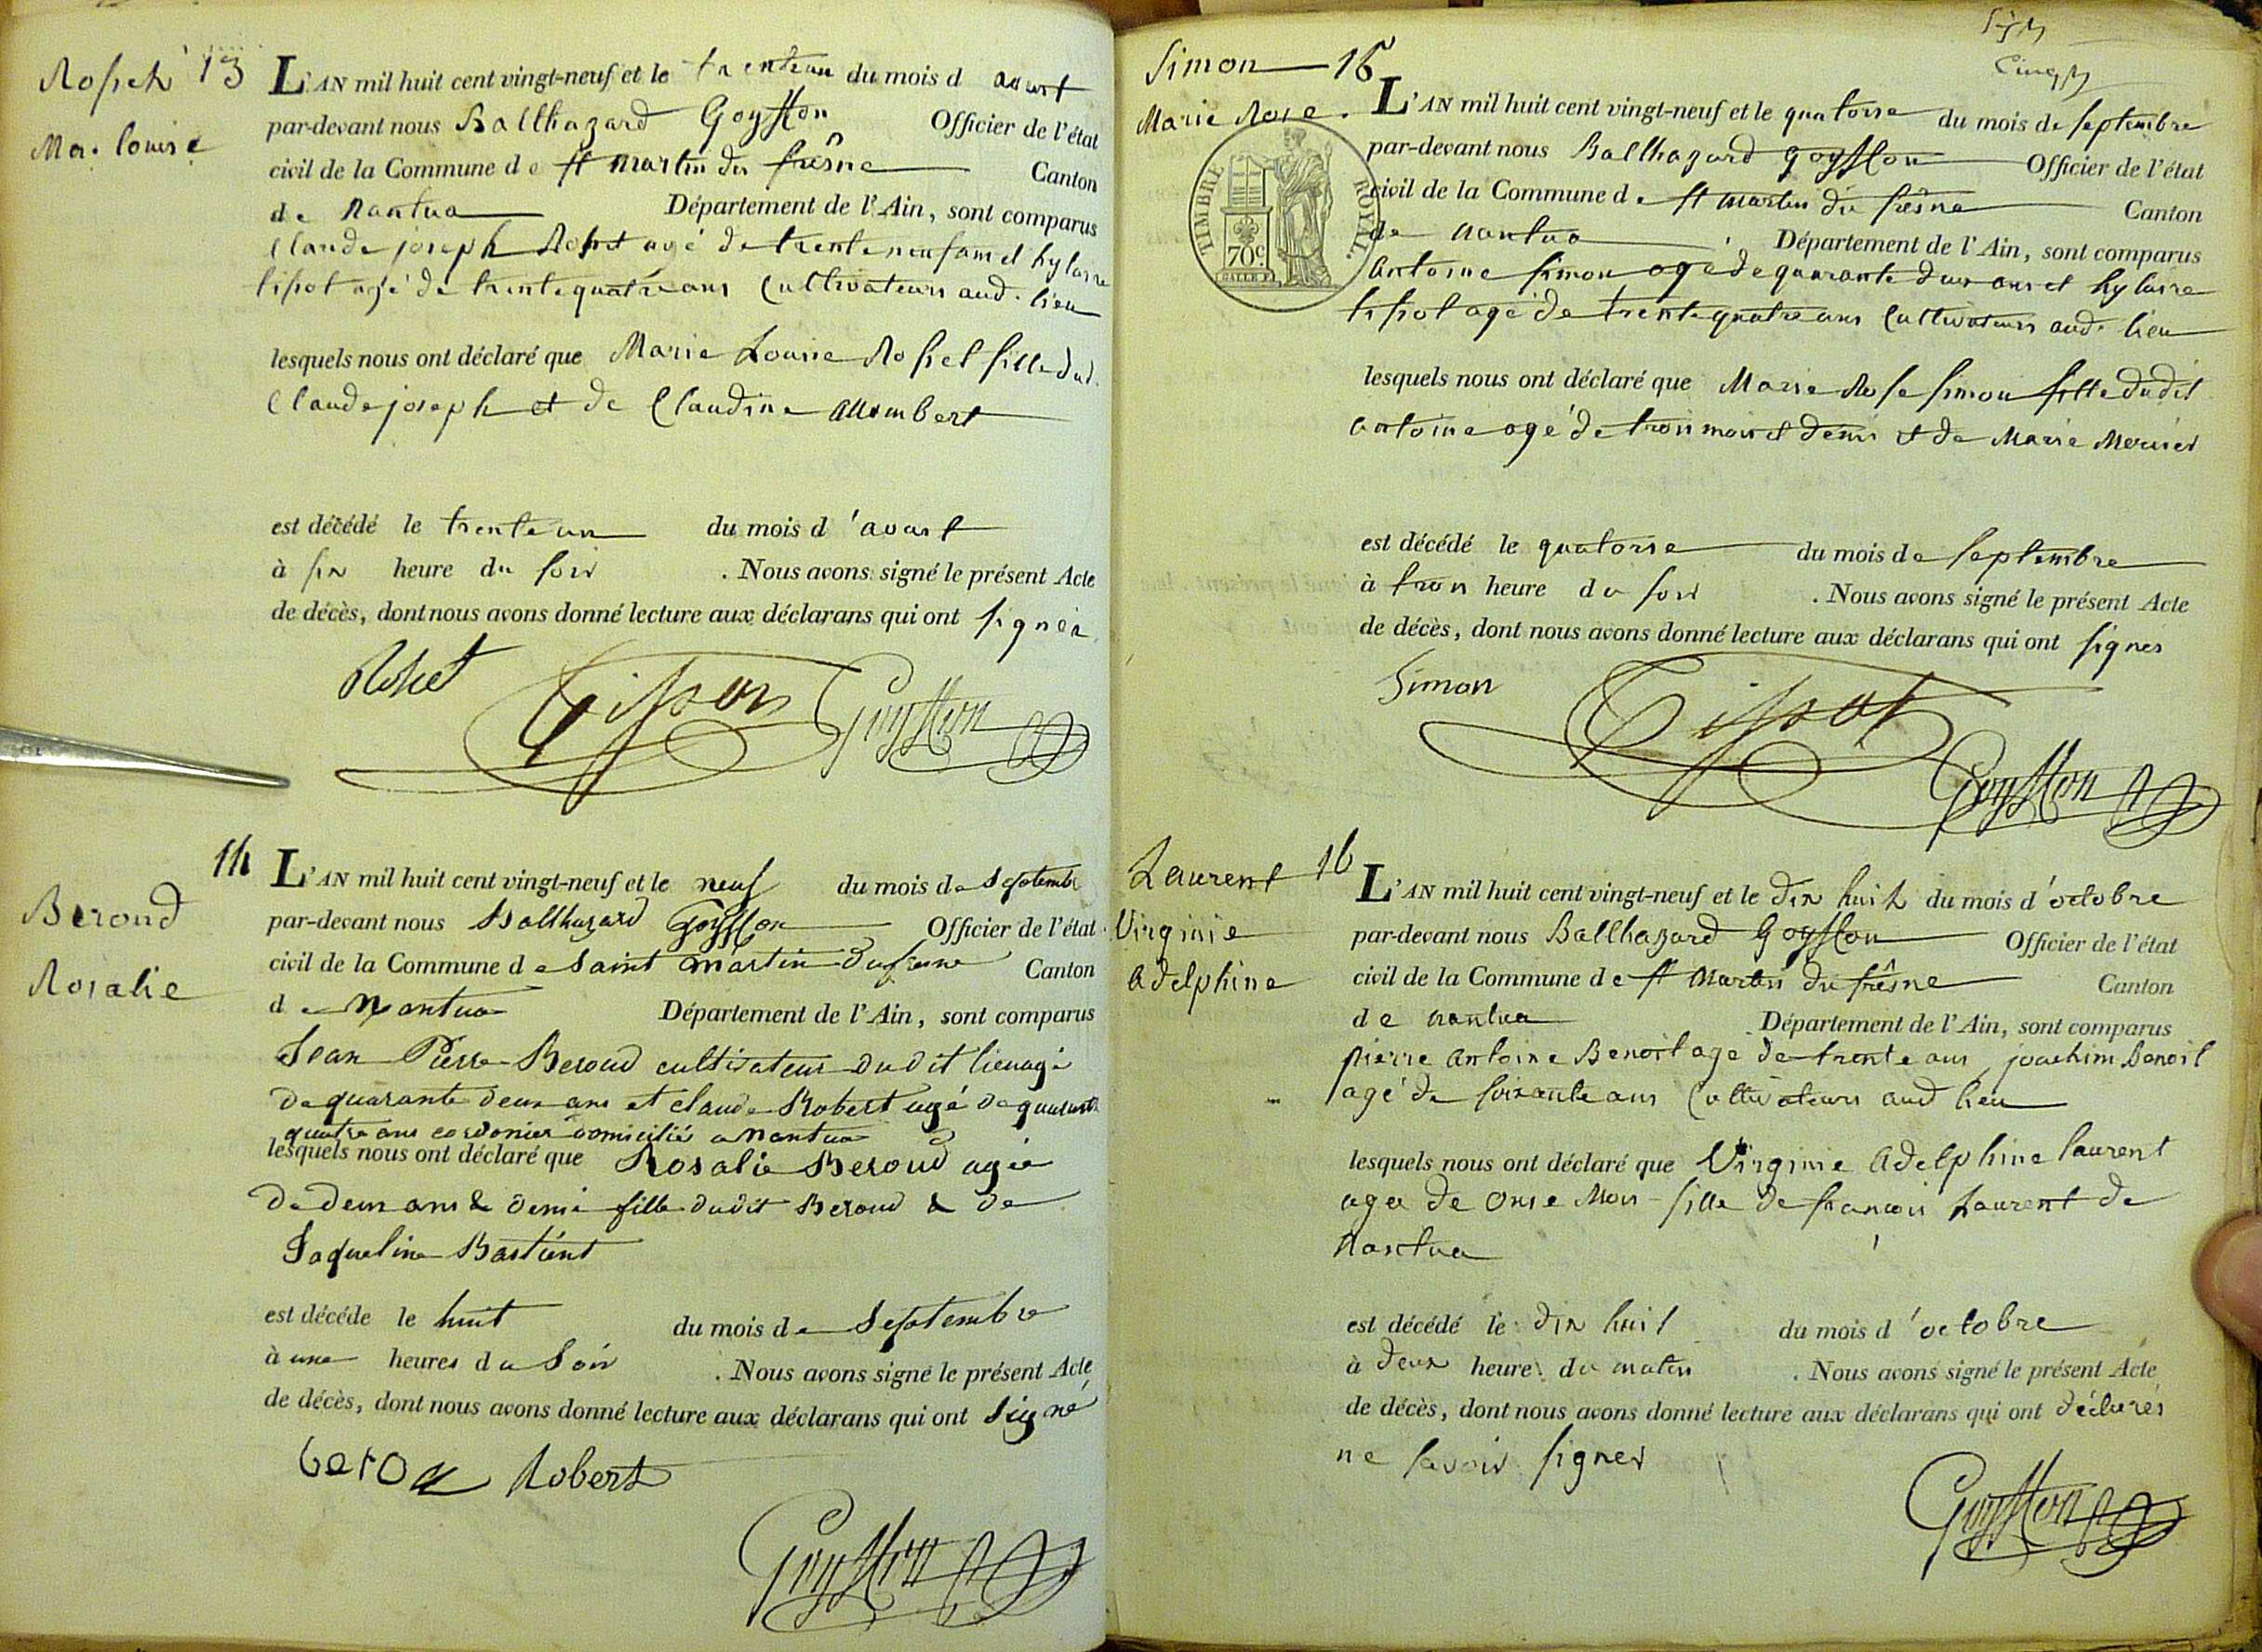 13
Ma. louise
L'AN mil huit cent vingt-neuf et le trente un du mois d aoust
par-devant nous Balthazard Goyffon Officier de l'état
civil de la Commune de st martin du frêsne Canton
de Nantua Département de l'Ain, sont comparus
Claude joseph Rosset agé de trente neuf ans et hylaire
tissot agé de trente quatre ans Cultivateurs aud. lieu
lesquels nous ont déclaré que Marie Louise Rosset fille dud.
Claude joseph et de Claudine allombert
est décédé le trente un du mois d'aoust
à six heure du soir . Nous avons signé le présent Acte
de décès, dont nous avons donné lecture aux déclarans qui ont signés
Rosset Tissot Goyffon
14
Beroud
Rosalie
L'AN mil huit cent vingt-neuf et le neuf du mois de Septembre
par-devant nous Balthazard Goyffon Officier de l'état
civil de la Commune de Saint martin du fresne Canton
de Nantua Département de l'Ain, sont comparus
Jean Pierre Beroud cultivateur dudit lieu agé
de quarante deux ans et claude Robert agé de quarante
quatre ans cordonier domicilié a Nantua
lesquels nous ont déclaré que Rosalie Beroud agée
de deux ans & demi fille dudit Beroud & de
Jaqueline Bastient
est décéde le huit du mois de Septembre
à une heures du Soir . Nous avons signé le présent Acte
de décès, dont nous avons donné lecture aux déclarans qui ont signé
Robert
Goyffon
Simon 15
Marie Rose.
TIMBRE ROYAL
70c.
L'AN mil huit cent vingt-neuf et le quatorse du mois de septembre
par-devant nous Balthazard Goyffon Officier de l'état
civil de la Commune de st martin du frêsne Canton
de nantua Département de l'Ain, sont comparus
antoine simon agé de quarante deux ans et hylaire
tissot agé de trente quatre ans Cultivateurs aud. lieu
lesquels nous ont déclaré que Marie Rose simon fille dudit
antoine agé de trois mois et demi et de Marie Mercier
est décédé le quatorse du mois de septembre
à trois heure du soir . Nous avons signé le présent Acte
de décès, dont nous avons donné lecture aux déclarans qui ont signés
Simon Tissot
Goyffon
Laurent 16
Virginie
adelphine
L'AN mil huit cent vingt-neuf et le dix huit du mois d'octobre
par-devant nous Balthazard Goyffon Officier de l'état
civil de la Commune de st Martin du frêsne Canton
de nantua Département de l'Ain, sont comparus
pierre antoine Benoit age de trente ans, joachim benoit
agé de soixante ans Cultivateurs aud lieu
lesquels nous ont déclaré que Virginie adelphine laurent
agee de onse Mois fille de francois Laurent de
nantua
est décédé le dix huit du mois d'octobre
à deux heures du matin . Nous avons signé le présent Acte
de décès, dont nous avons donné lecture aux déclarans qui ont déclarés
ne savoir signer
Goyffon